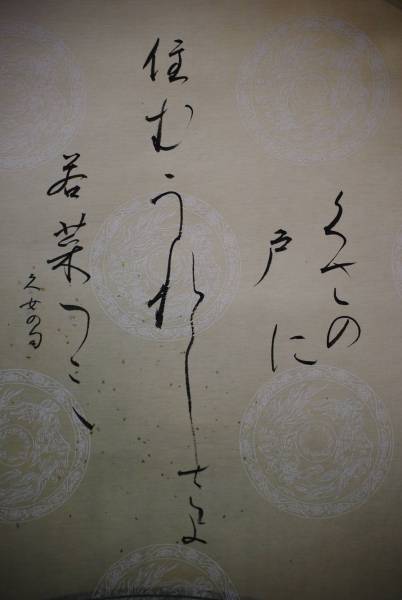 くさの
戸に
住むうれしさよ
若菜つミ
久女の句